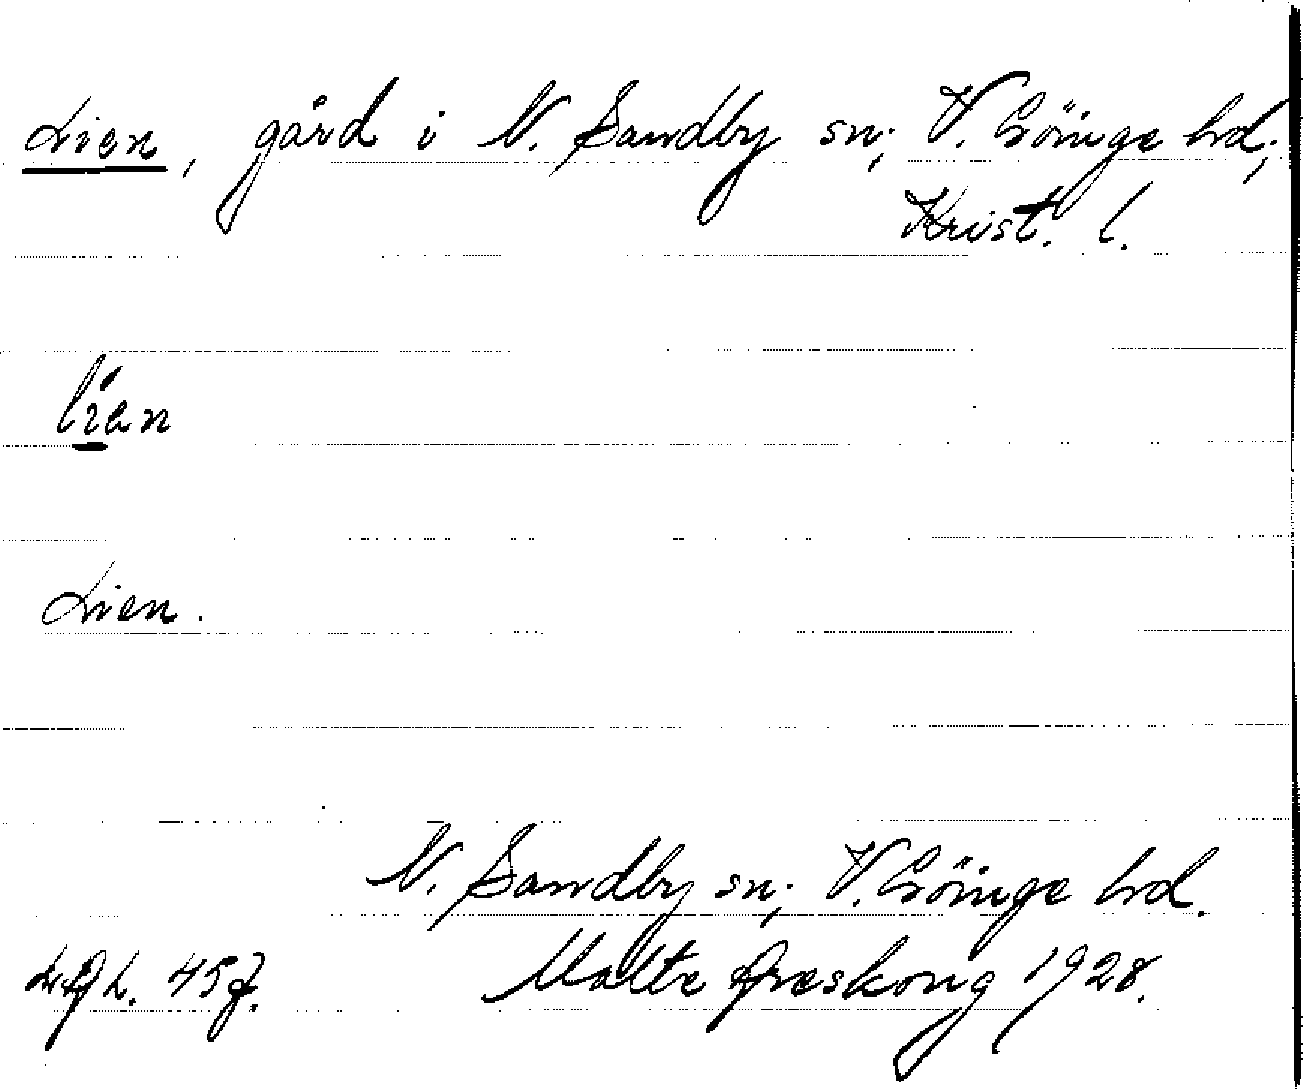 Lien, gård i N. Sandby sn; V. Göinge hd;
Krist. l.
lien
Lien.
N. Sandby sn; V. Göinge hd.
Malte Areskoug 1928.